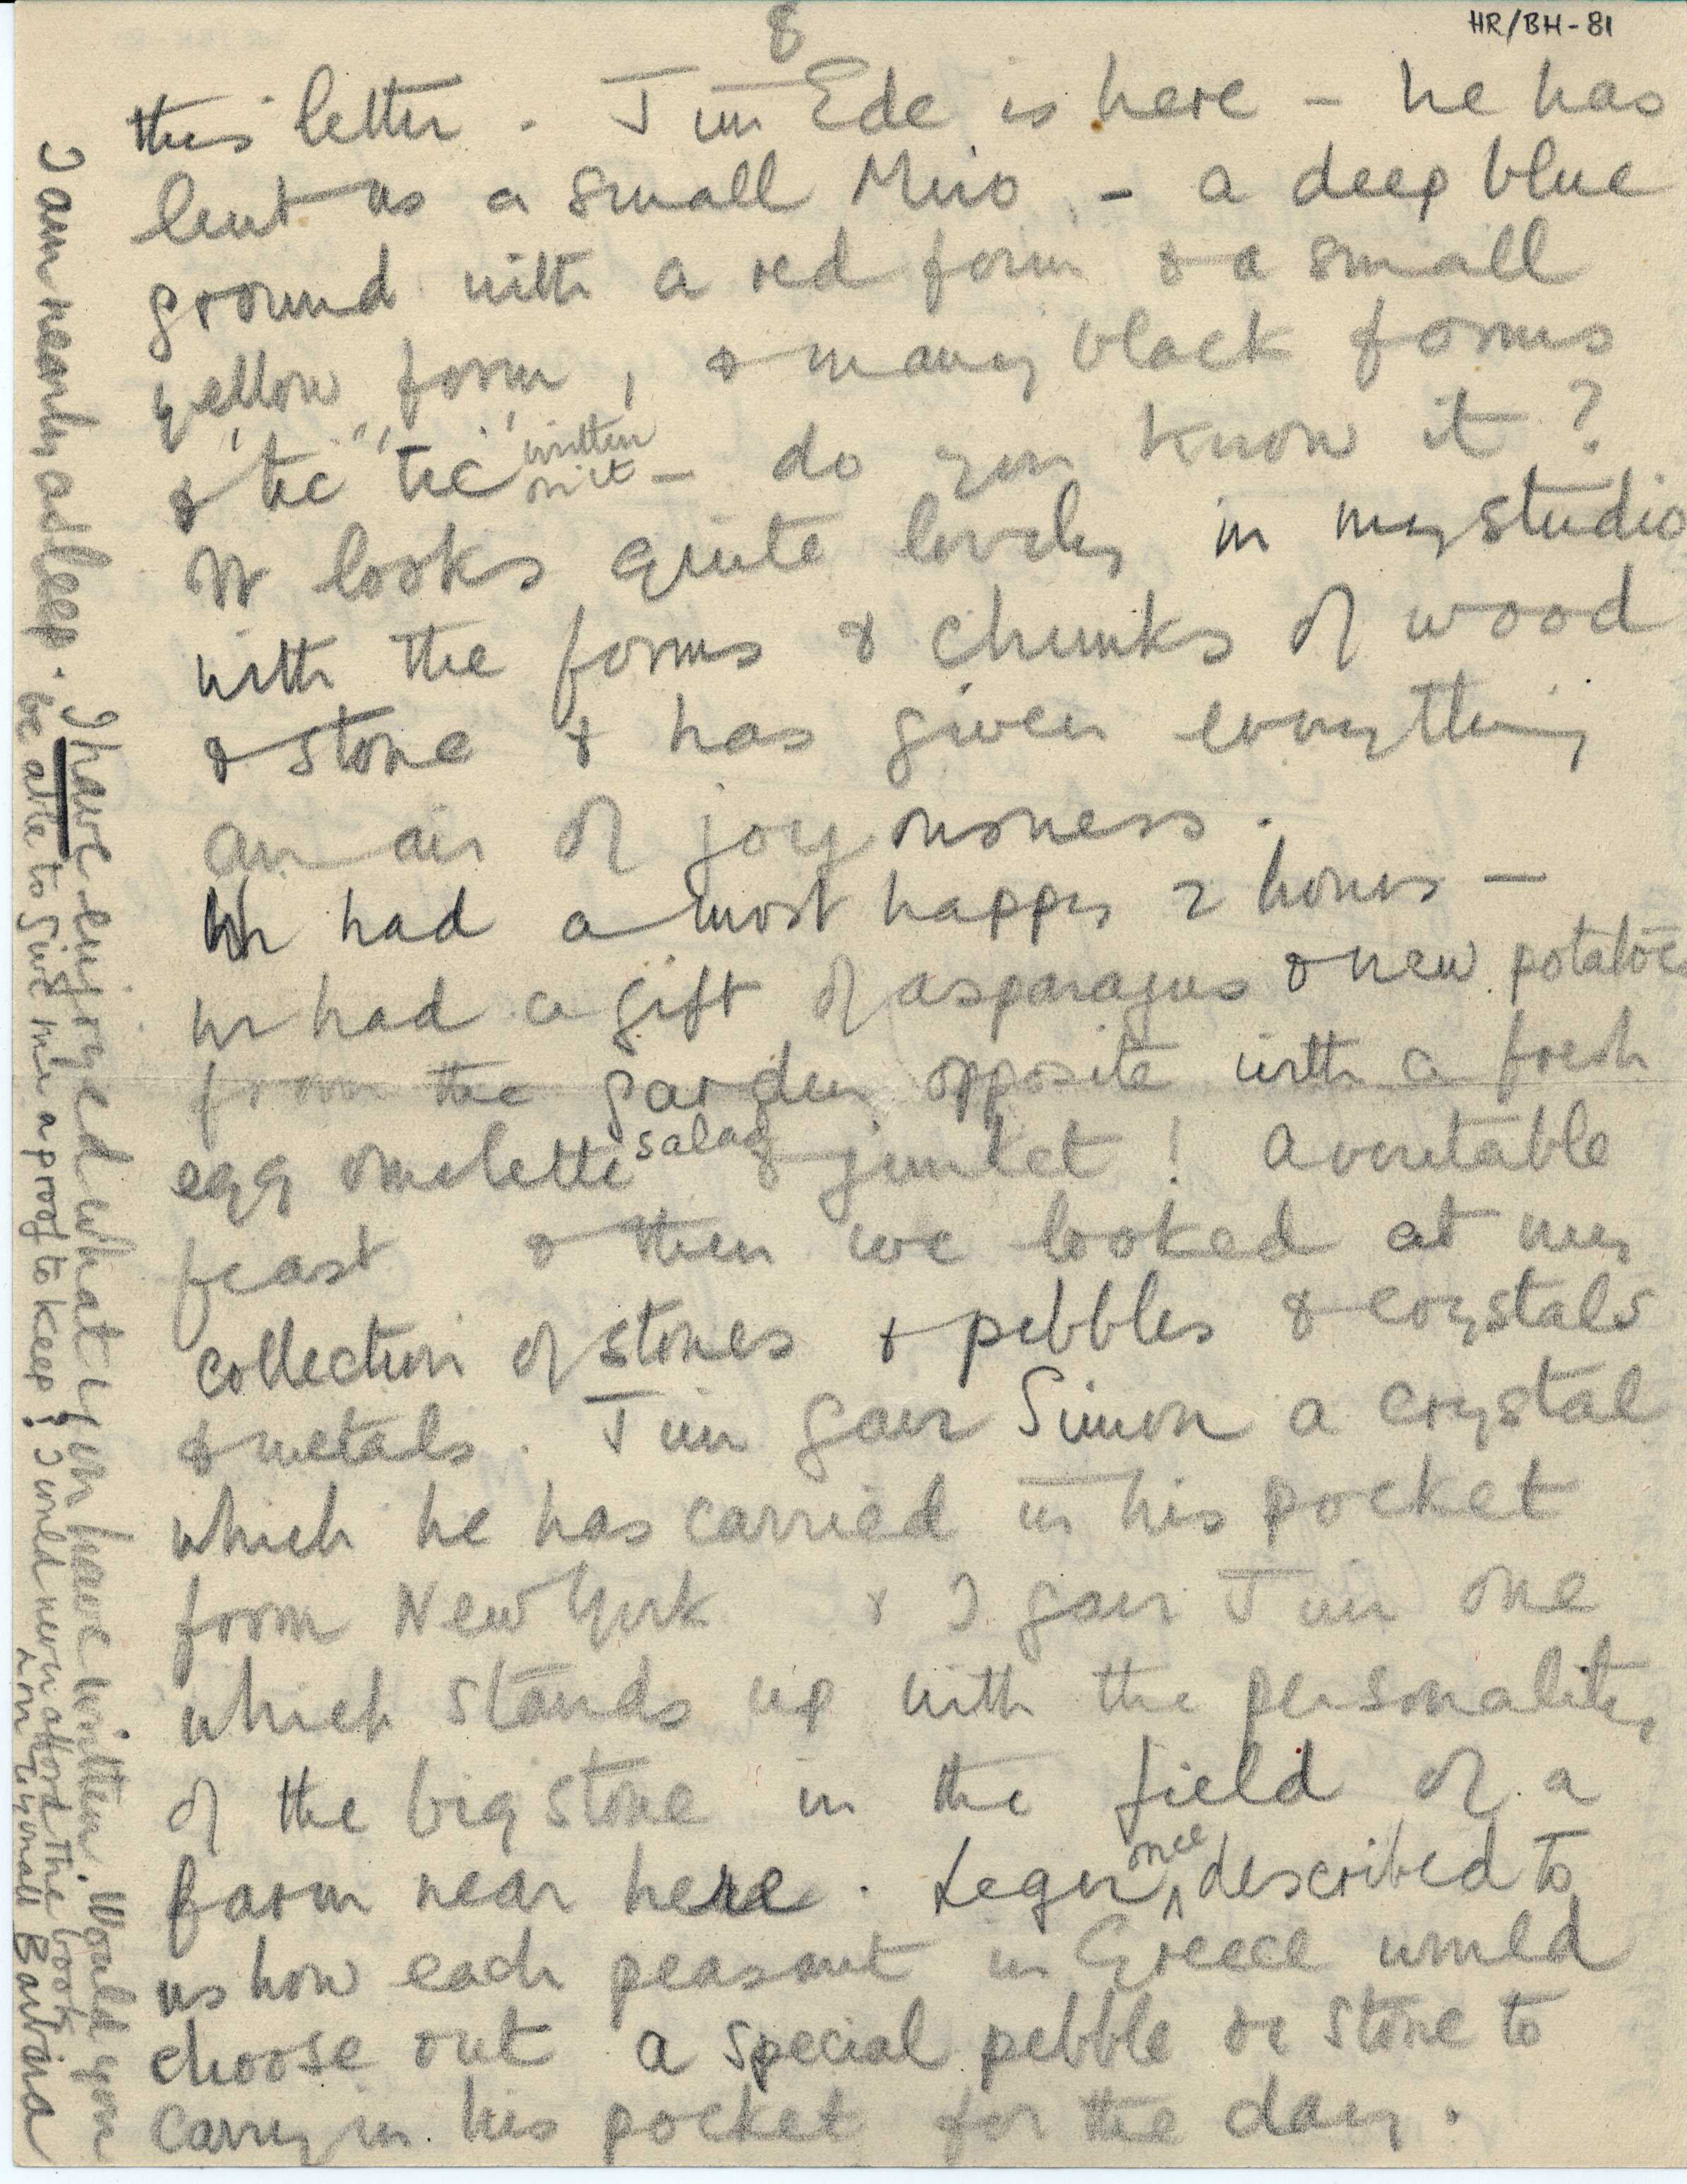 8
HR/BH-81
this letter. Jim Ede is here – he has
lent us a small Miro – a deep blue
ground with a red form & a small
yellow form, & many black forms
& "tic" "tic" written on it – do you know it?
It looks quite lovely in my studio
with the forms & chunks of wood
& stone & has given everything
an air of joyousness.
We had a most happy 2 hours –
we had a gift of asparagus & new potatoes
from the garden opposite with a fresh
egg omelette salad & junket! A veritable
feast & then we looked at my
collection of stones & pebbles & crystals
& metals. Jim gave Simon a crystal
which he has carried in his pocket
from New York & I gave Jim one
which stands up with the personality
of the big stone in the field of a
farm near here. Leger once described to
us how each peasant in Greece would
choose out a special pebble or stone to
carry in his pocket for the day.
I am nearly asleep. I have enjoyed what you have written. Would you
be able to give me a proof to keep? I could never afford the book
Love to you all Barbara